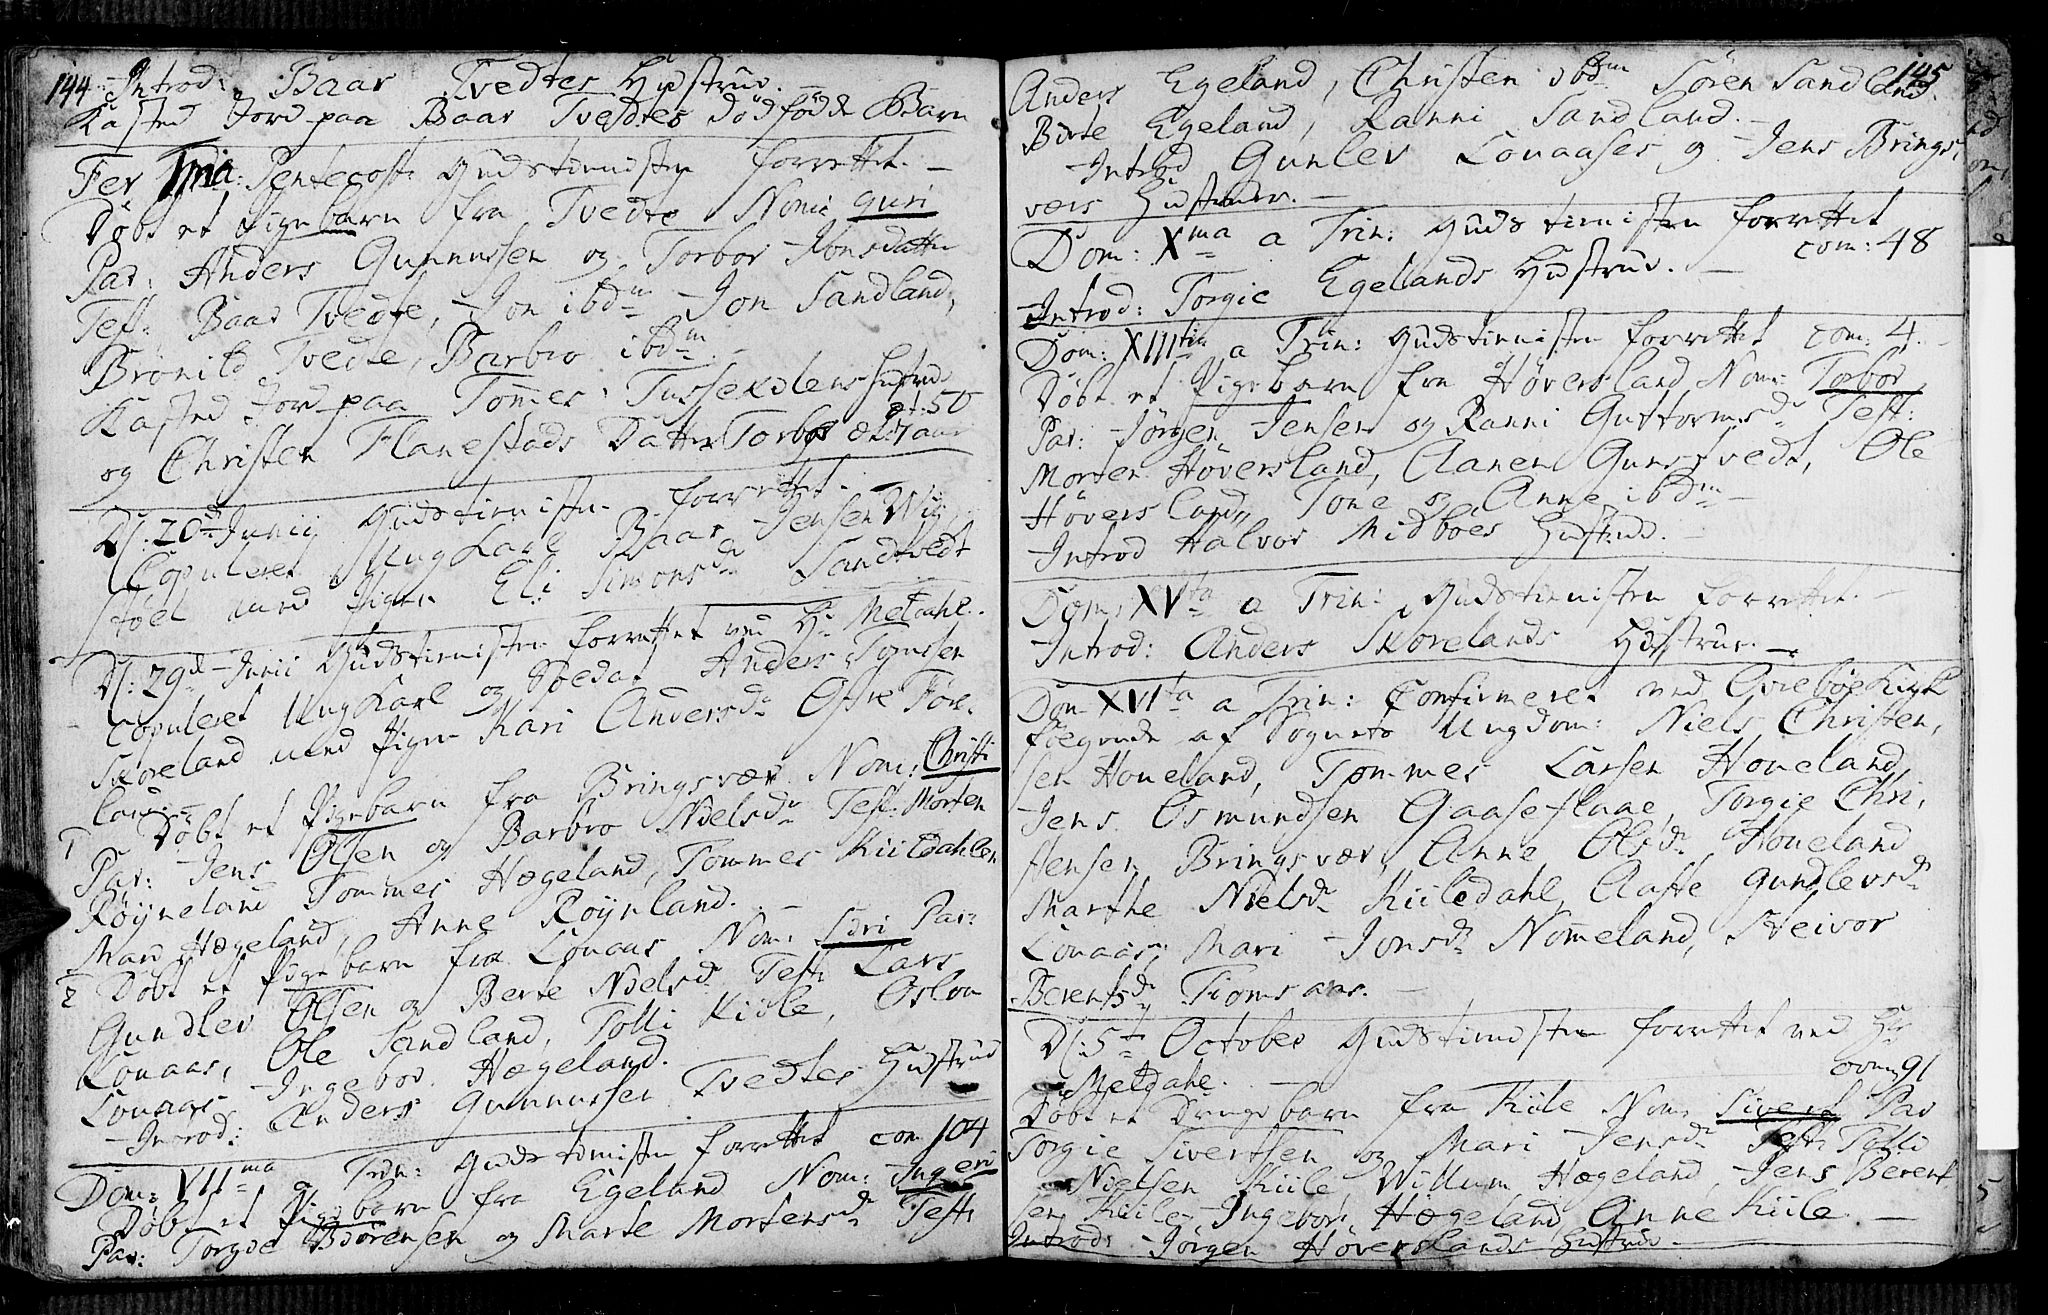 144
Introd: Baar Tvedtes Hustrue.
Kasted Jord paa Baar Tvedtes dødfødde Barn
Fer IIItia: Pentecost: Gudstienisten forrettet. —
Døbt et Pigebarn fra Tvedte Nomi: Guri
Par: Anders Gunnursen og Torbor Jonsdatter
Test: Baar Tvedte, Jon ibdm Jon Sandland,
Brønild Tvedte, Barbro ibdm. —
Kasted Jord paa Tommes Hustrue
æt: 50
og Christen Flanestads Datter Torbor æt: 7 aar
D: 20d Junij Gudstienisten forrettet. —
Copuleret Ung Karl Baar Jensen
støel med Pigen Eli Simonsdr Sandtvedt
D: 29d Junii Gudstienisten forrettet ved Hr Meldahl.
Copuleret Ung Karl og Soldat Anders Tomsen
Skoreland med Pigen Kari Andersdr Øfre
land. —
1 Døbt et Pigebarn fra Bringsvær Nom: Christi
Par: Jens Olsen og Barbro Nielsdr Test: Morten
Røyneland Tommes Hægeland, Tommes Kiiledahlen
Mari Hægeland, Anne Røynland. —
2 Døbt et Pigebarn fra Louaas Nom: Siri Par:
Gundlev Olsen og Berte Nielsd. Test: Lars
Louaas, Ole Sandland, Tolli Kiile, Oslou
Louaas Ingebor Hægeland.
Introd: Anders Gunnursen Tvedtes Hustrue
Dom: VIIma a Trin: Gudstienisten forrettet com 104
Døbt et Pigebarn fra Egeland Nom: Ingeri
Par: Torgie Børensen og Marte Mortensdr Test:
145
Anders Egeland, Christen ibdm Søren Sandland
Birte Egeland, Ranni Sandland. —
Introd Gunlev Louaases og Jens Brings-
værs Hustruer. —
Dom: Xma a Trin: Gudstienisten forrettet
com: 48
Introd: Torgie Egelands Hustrue. —
Dom: XIIItia a Trin: Gudstienisten forrettet com: 4. —
Døbt et Pigebarn fra Høversland Nom: Torbor,
Par: Jørgen Jensen og Ranni Guttormsdr Test:
Morten Høversland, Aanen Gunstvedt, Ole
Høversland, Tone og Anne ibdm —
Introd Halvor Midboes Hustrue. —
Dom: XVta a Trin: Gudstienisten forrettet. —
Introd: Anders Skorelands Hustrue. —
Dom XVIta a Trin: Confirmeret ved Øvebøe Kirke
følgende af Sognets Ungdom: Niels Christen,
sen Houeland, Tommes Larsen Houeland,
Jens Osmundsen Gaaseflaae, Torgie Chri,
stensen Bringsvær, Anne Olsdr Houeland
Marthe Nielsdr Kiiledahl, Aaste Gundlevsdr
Louaas, Mari Jonsdr Nomeland, Steivor
Berentsdr Tiomsaas. —
D: 5te October Gudstienisten forrettet ved Hr
Meldahl. —
com 91
Døbt et Drengebarn fra Kiile Nom: Sivert Par
Torgie Sivertsen og Mari Jensdr Test: Tolli
Nielsen Kiile, Willum Hægeland, Jens Berent
sen Kiile, Ingebor Hægeland Anne Kiile —
Introd: Jørgen Høverslands Hustrue. —